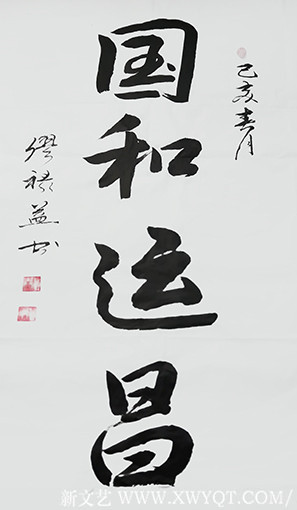 己亥春月
国和运昌
缪禄益书
新文艺 WWW.XWYQT.COM/